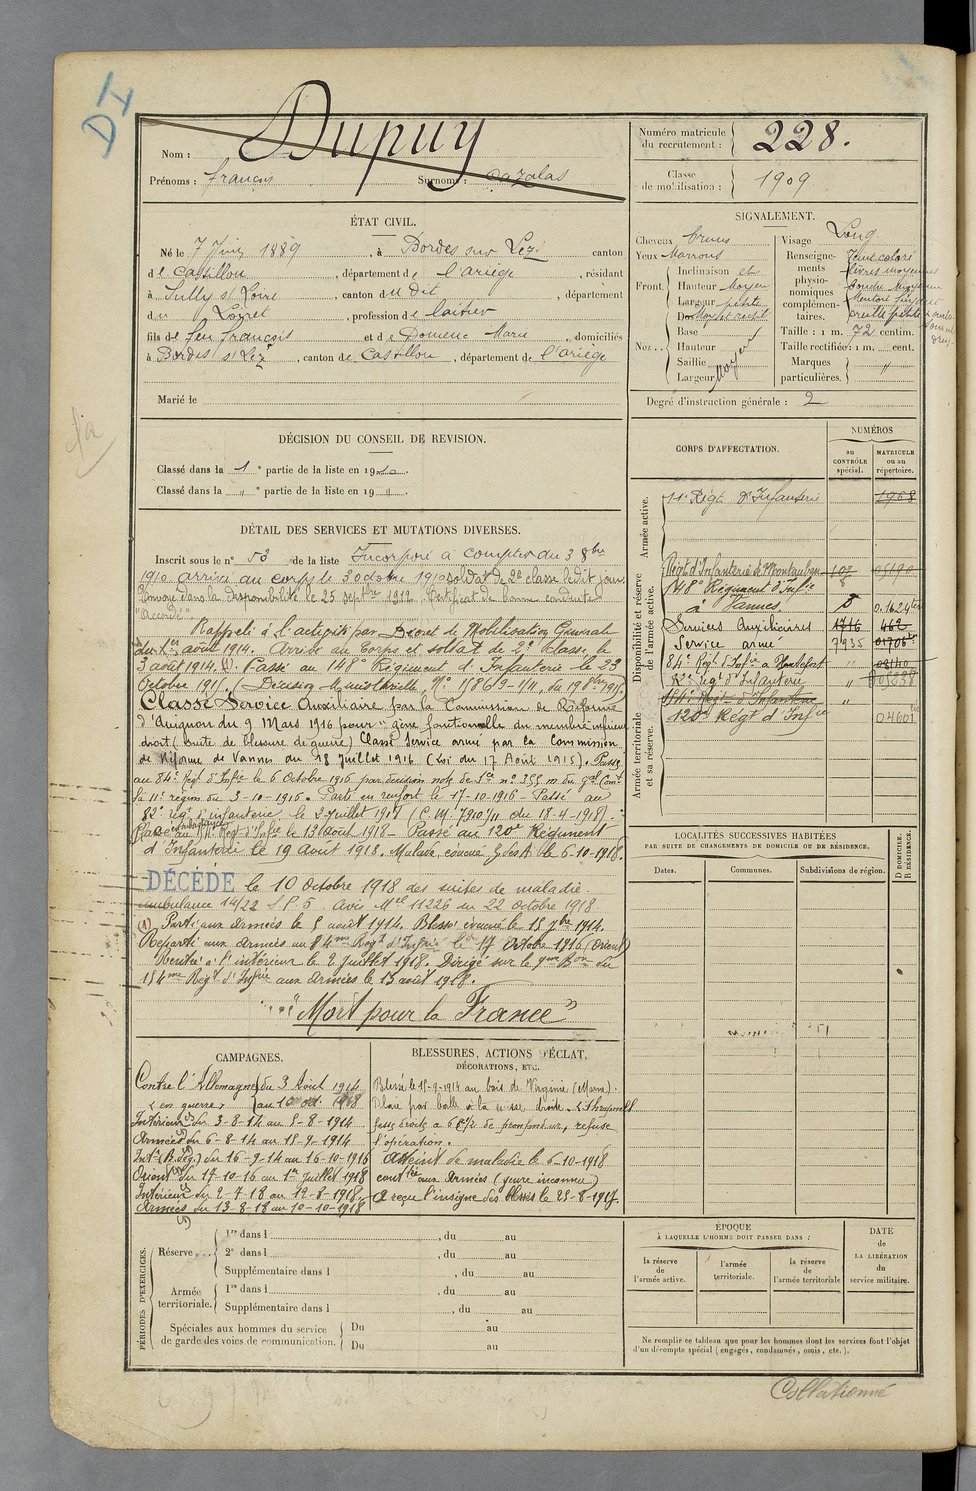 DI
Nom : Dupuy
Prénoms : françois Surnoms : Cazalas
Numéro matricule du recrutement : 228.
Classe de mobilisation : 1909
ÉTAT CIVIL.
Né le 7 Juin 1889, à Bordes sur Lez canton
de Castillon, département de l'ariège, résidant
à Sully s/ Loire, canton du dit, département
du Loiret, profession de laitier
fils de feu françois et de Domenc Marie, domiciliés
à Bordes s/ Lez, canton de Castillon, département de l'ariège
Marié le
SIGNALEMENT.
Cheveux bruns
Yeux Marrons
Front. Inclinaison
Hauteur Moyen
Largeur petite
Nez. Dos
Base
Hauteur
Saillie
Largeur Moyen
Visage Long
Renseignements physionomiques complémentaires.
Taille : 1 m. 72 centim.
Taille rectifiée : 1 m. cent.
Marques particulières. "
Degré d'instruction générale : 2
DÉCISION DU CONSEIL DE REVISION.
Classé dans la 1e partie de la liste en 1910.
Classé dans la " e partie de la liste en 19 ".
CORPS D'AFFECTATION.
NUMÉROS
au CONTRÔLE spécial.
MATRICULE ou au répertoire.
Armée active.
11e Régt d'Infanterie 1968
Disponibilité et réserve de l'armée active.
Régt d'Infanterie de Montauban
148e Régiment d'Infie
à Vannes
Services Auxiliaires 1716 462
Service armé 7935
84e Régt d'Infie
82e régt d'Infanterie "
Armée territoriale et sa réserve.
154e Régt d'Infanterie "
120e Régt d'Infie
DÉTAIL DES SERVICES ET MUTATIONS DIVERSES.
Inscrit sous le n° 53 de la liste Incorporé à compter du 3 8bre
1910 arrivé au corps le 3 octobre 1910 soldat de 2e classe le dit jour
Envoyé dans la disponibilité le 25 septbre 1912. Certificat de bonne conduite
"Accordé".
Rappelé à l'activité par Décret de Mobilisation Générale
du 1er août 1914. Arrivé au Corps et soldat de 2e Classe, le
3 août 1914. (1). Passé au 148e Régiment d'Infanterie le 23
Octobre 1915. (Décision Ministérielle, N° 15869-1/11, du 19 8bre 1915)
Classé Service Auxiliaire par la Commission de Réforme
d'Avignon du 9 Mars 1916 pour : gêne fonctionnelle du membre inférieur
droit (suite de blessure de guerre) Classé Service armé par la Commission
de Réforme de Vannes du 18 Juillet 1916 (Loi du 17 Août 1915). Passé
au 84e Régt d'Infie le 6 Octobre 1916 par décision
la 11e région du 3-10-1916. Parti en renfort le 17-10-1916 - Passé au
82e régt d'infanterie, le 2 Juillet 1918 (C.M. 7910/11 du 18-4-1918).
au 154e Régt d'Infie le 13 Août 1918 - Passé au 120e Régiment
d'Infanterie le 19 Août 1918. Malade, évacué le 6-10-1918.
DÉCÉDÉ le 10 Octobre 1918 des suites de maladie.
ambulance 14/22 S.P.5. avis Mel 11226 du 22 octobre 1918
(1) Parti aux armées le 5 août 1914. Blessé évacué le 15 7bre 1914.
Reparti aux armées au 84me Régt d'Infie le 17 Octobre 1916 (Orient)
Rentré à l'intérieur le 2 Juillet 1918. Dirigé sur le 9me Bon du
154me Régt d'Infie aux armées le 13 août 1918.
"Mort pour la France"
LOCALITÉS SUCCESSIVES HABITÉES
PAR SUITE DE CHANGEMENTS DE DOMICILE OU DE RÉSIDENCE.
Dates. Communes. Subdivisions de région.
D DOMICILE. R RÉSIDENCE.
CAMPAGNES.
Contre l'Allemagne du 3 Août 1914
(en guerre) au 10 oct. 1918
Intérieur du 3-8-14 au 5-8-1914
Armées du 6-8-14 au 15-9-1914
Intr (B. de g.) du 16-9-14 au 16-10-1916
Orient du 17-10-16 au 1er Juillet 1918
Intérieur du 2-7-18 au 12-8-1918.
Armées du 13-8-18 au 10-10-1918
BLESSURES, ACTIONS D'ÉCLAT,
DÉCORATIONS, ETC.
Blessé le 15-9-1914 au bois de Virginie (Marne).
Plaie par balle à la cuisse droite
fesse droite à 6 c/2 de profondeur, refuse
l'opération.
Atteint de maladie le 6-10-1918
contée aux Armées (genre inconnu)
A reçu l'insigne des blessés le 25-8-1917.
PÉRIODES D'EXERCICES.
Réserve. 1re dans l , du au
2e dans l , du au
Supplémentaire dans l , du au
Armée territoriale. 1re dans l , du au
Supplémentaire dans l , du au
Spéciales aux hommes du service de garde des voies de communication. Du au
Du au
ÉPOQUE
À LAQUELLE L'HOMME DOIT PASSER DANS :
la réserve de l'armée active.
l'armée territoriale.
la réserve de l'armée territoriale
DATE de LA LIBÉRATION du service militaire.
Ne remplir ce tableau que pour les hommes dont les services font l'objet
d'un décompte spécial (engagés, condamnés, omis, etc.).
Collationné